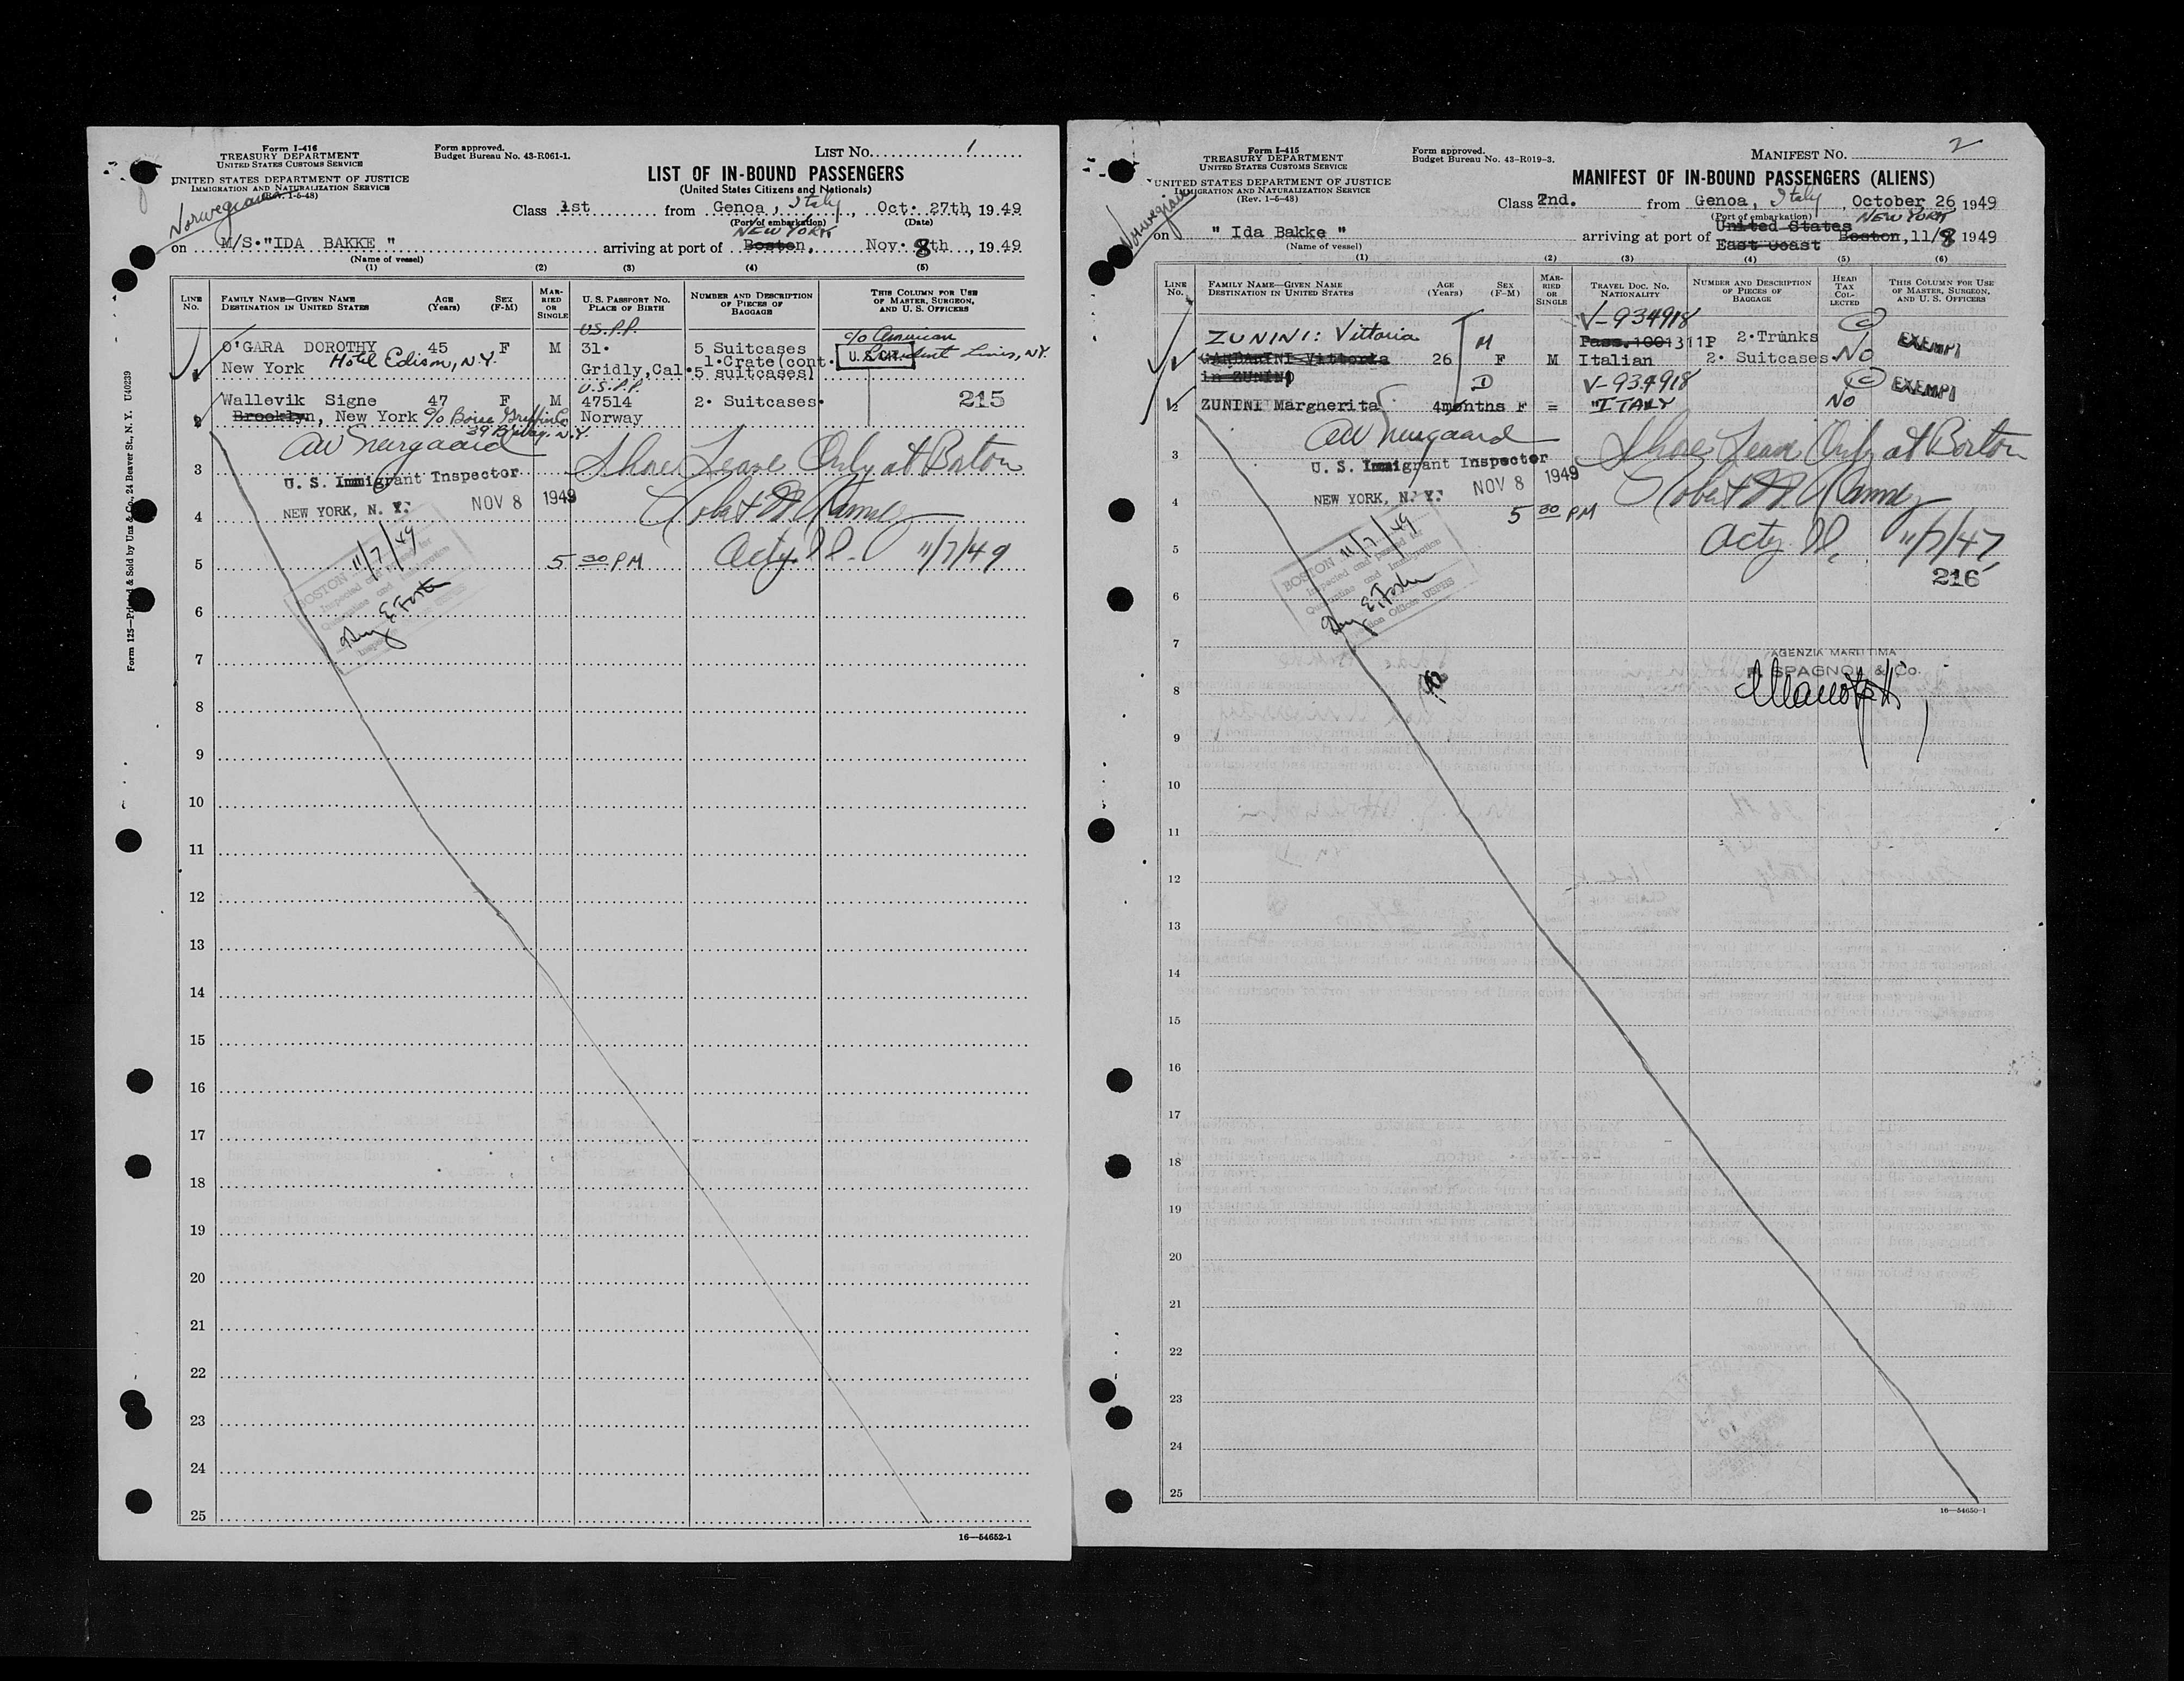 Form I-416
TREASURY DEPARTMENT
UNITED STATES CUSTOMS SERVICE
UNITED STATES DEPARTMENT OF JUSTICE
IMMIGRATION AND NATURALIZATION SERVICE
(Rev. 1-5-48)
Form approved.
Budget Bureau No. 43-R061-1.
LIST NO. 1
LIST OF IN-BOUND PASSENGERS
(United States Citizens and Nationals)
Norwegian
Class 1st from Genoa, Italy, Oct. 27th, 1949
(Port of embarkation) (Date)
NEW YORK
on M/S."IDA BAKKE " arriving at port of Boston, Nov. 8th, 1949
(Name of vessel)
(1) (2) (3) (4) (5)
LINE NO.
FAMILY NAME—GIVEN NAME
DESTINATION IN UNITED STATES
AGE (Years)
SEX (F-M)
MARRIED OR SINGLE
U.S. PASSPORT NO.
PLACE OF BIRTH
NUMBER AND DESCRIPTION OF PIECES OF BAGGAGE
THIS COLUMN FOR USE OF MASTER, SURGEON, AND U. S. OFFICERS
U.S.P.P. c/o American
O'GARA DOROTHY 45 F M 31. 5 Suitcases
1.Crate(cont. U.S.CIT. President Lines, N.Y.
New York Hotel Edison, N.Y. Gridly,Cal. 5 suitcases)
U.S.P.P.
Wallevik Signe 47 F M 47514 2. Suitcases. 215
2 Brooklyn, New York c/o Norway
39 B'way, N.Y.
3 Shore Leave Only at Boston
U. S. Immigrant Inspector
NEW YORK, N. Y. NOV 8 1949
4 Robert
5 5 30 PM Acty. 11/7/49
BOSTON 11/7/49
Inspected and passed for
Quarantine and Immigration
6
7
8
9
10
11
12
13
14
15
16
17
18
19
20
21
22
23
24
25
16—54652-1
Form 125—Printed & Sold by Unz & Co., 24 Beaver St., N. Y. U40239
Form I-415
TREASURY DEPARTMENT
UNITED STATES CUSTOMS SERVICE
UNITED STATES DEPARTMENT OF JUSTICE
IMMIGRATION AND NATURALIZATION SERVICE
(Rev. 1-5-48)
Form approved.
Budget Bureau No. 43-R019-3.
MANIFEST NO. 2
MANIFEST OF IN-BOUND PASSENGERS (ALIENS)
Norwegian
Class 2nd. from Genoa, Italy, October 26 1949
(Port of embarkation) NEW YORK
United States
on " Ida Bakke " arriving at port of East Coast Boston, 11/8 1949
(Name of vessel)
(1) (2) (3) (4) (5) (6)
LINE NO.
FAMILY NAME—GIVEN NAME
DESTINATION IN UNITED STATES
AGE (Years)
SEX (F-M)
MARRIED OR SINGLE
TRAVEL DOC. NO.
NATIONALITY
NUMBER AND DESCRIPTION OF PIECES OF BAGGAGE
HEAD TAX COLLECTED
THIS COLUMN FOR USE OF MASTER, SURGEON, AND U. S. OFFICERS
V-934918
ZUNINI: Vittoria M Pass.1001311P 2.Trunks EXEMPT
Vittoria 26 F M Italian 2. Suitcases. No
in ZUNINI
D V-934918 EXEMPT
2 ZUNINI Margherita 4months F = "ITALY No
3 Shore Leave Only at Boston
U. S. Immigrant Inspector
NEW YORK, N. Y. NOV 8 1949
4 Robert
5 30 PM
5 Acty. 11/7/47
216
BOSTON 11/7/49
Inspected and passed for
Quarantine and Immigration
6
7
AGENZIA MARITTIMA
SPAGNOLI & Co.
8
9
10
11
12
13
14
15
16
17
18
19
20
21
22
23
24
25
16—54650-1